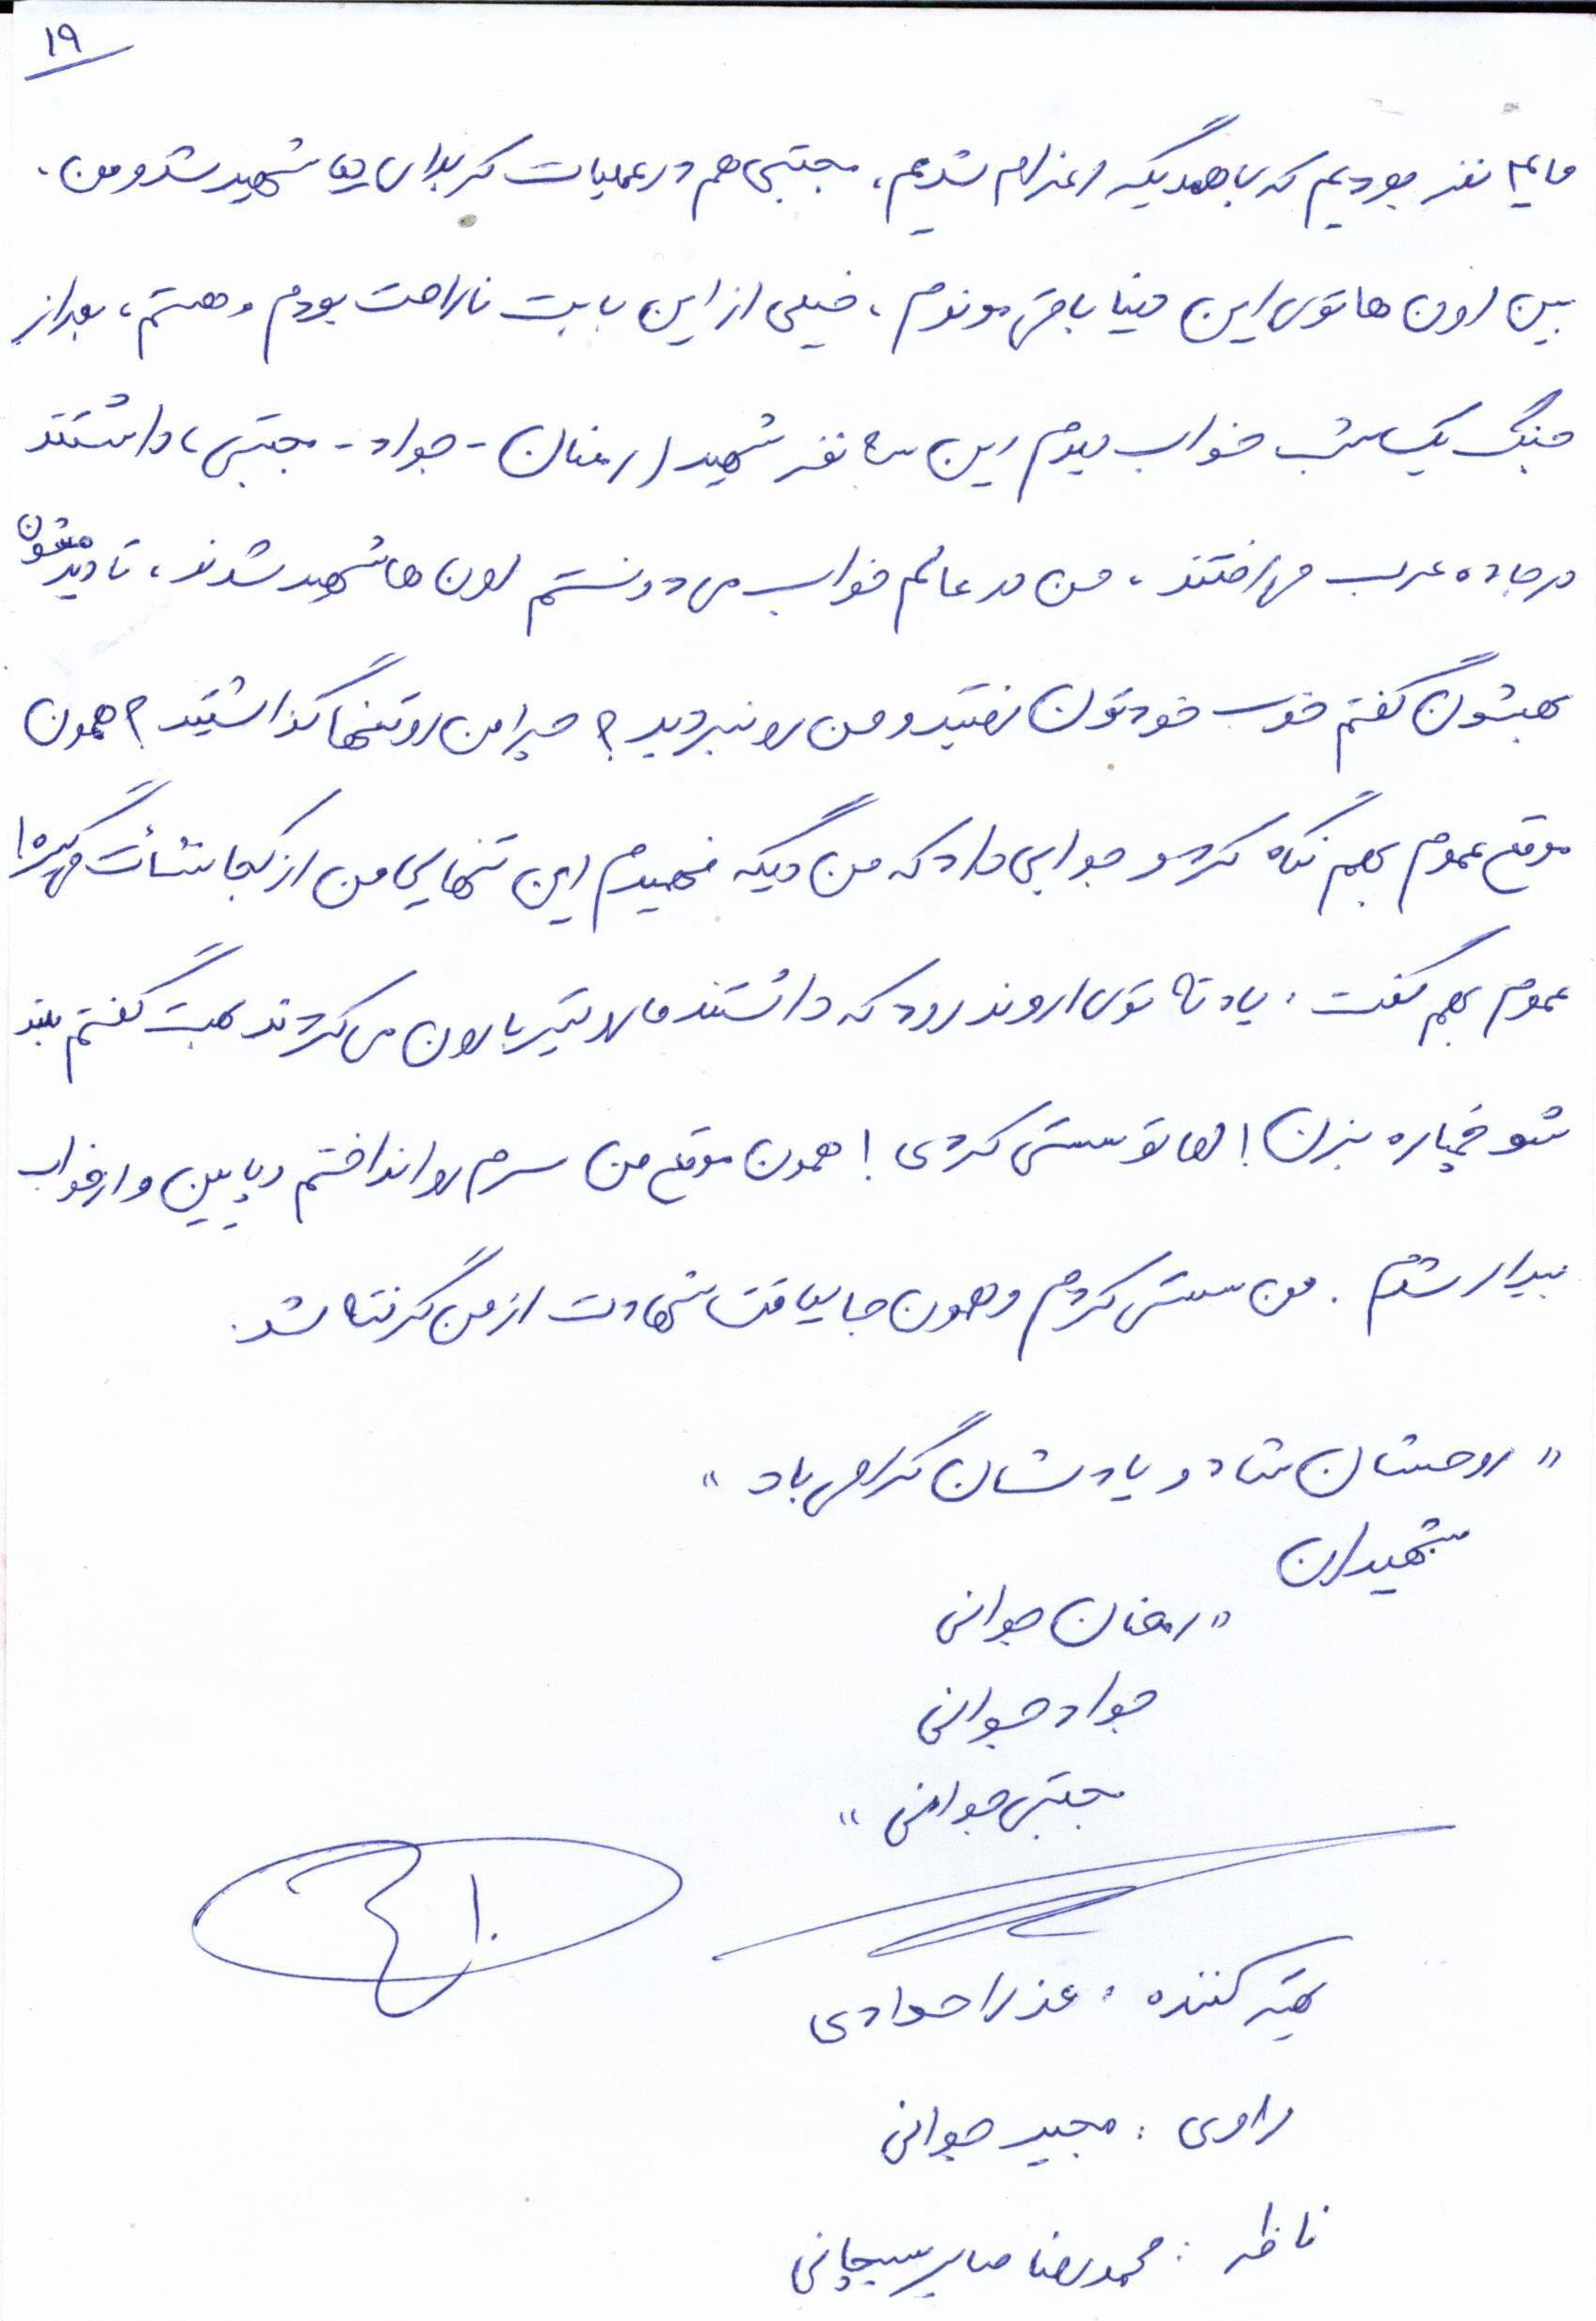 ۱۹
ما ۴ نفر بودیم که با همدیگه اعزام شدیم، مجتبی هم در عملیات کربلای شهید شد و من
بین اون ها توی این دنیا باقی موندم، خیلی از این بابت ناراحت بودم و هستم، بعد از
جنگ یک شب خواب دیدم این سه نفر شهید (رمضان - جواد - مجتبی) داشتند
در جاده عرب می رفتند، من در عالم خواب می دونستم اون ها شهید شدند، تا دیدمشون
بهشون گفتم خوب خودتون رفتید و من رو نبردید؟ چرا من رو تنها گذاشتید؟ همون
موقع عموم بهم نگاه کرد و جوابی داد که من دیگه فهمیدم این تنهایی من از کجا نشأت می گیره!
عموم بهم گفت: یادته توی اروند رود که داشتند ما رو تیربارون می کردند بهت گفتم بلند
شو خمپاره بزن! اما تو سستی کردی! همون موقع من سرم رو انداختم پایین و از خواب
بیدار شدم. من سستی کردم و همون جا لیاقت شهادت از من گرفته شد.
"روحشان شاد و یادشان گرامی باد"
شهیدان
"رمضان جوانی
جواد جوانی
مجتبی جوانی"
تهیه کننده: عذرا جوادی
راوی: مجید جوانی
ناظر: محمدرضا صابر سیچانی